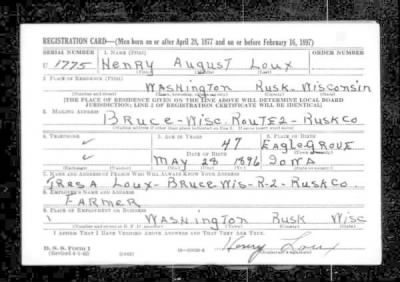 REGISTRATION CARD—(Men born on or after April 28, 1877 and on or before February 16, 1897)
SERIAL NUMBER 1. NAME (Print)
U 1775 Henry August Loux
2. PLACE OF RESIDENCE (Print)
WASHINGTON RUSK WISCONSIN
[THE PLACE OF RESIDENCE GIVEN ON THE LINE ABOVE WILL DETERMINE LOCAL BOARD
JURISDICTION; LINE 2 OF REGISTRATION CERTIFICATE WILL BE IDENTICAL]
3. MAILING ADDRESS
BRUCE-WISC. ROUTE 2-RUSK CO
4. TELEPHONE 5. AGE IN YEARS 6. PLACE OF BIRTH
47 EAGLE GROVE
DATE OF BIRTH
MAY 28 1896 IOWA
7. NAME AND ADDRESS OF PERSON WHO WILL ALWAYS KNOW YOUR ADDRESS
LOUX-BRUCE-WIS-R-2-RUSK CO.
8. EMPLOYER'S NAME AND ADDRESS
FARMER
9. PLACE OF EMPLOYMENT OR BUSINESS
WASHINGTON RUSK WISC
I AFFIRM THAT I HAVE VERIFIED ABOVE ANSWERS AND THAT THEY ARE TRUE.
D. S. S. Form 1
Henry Loux